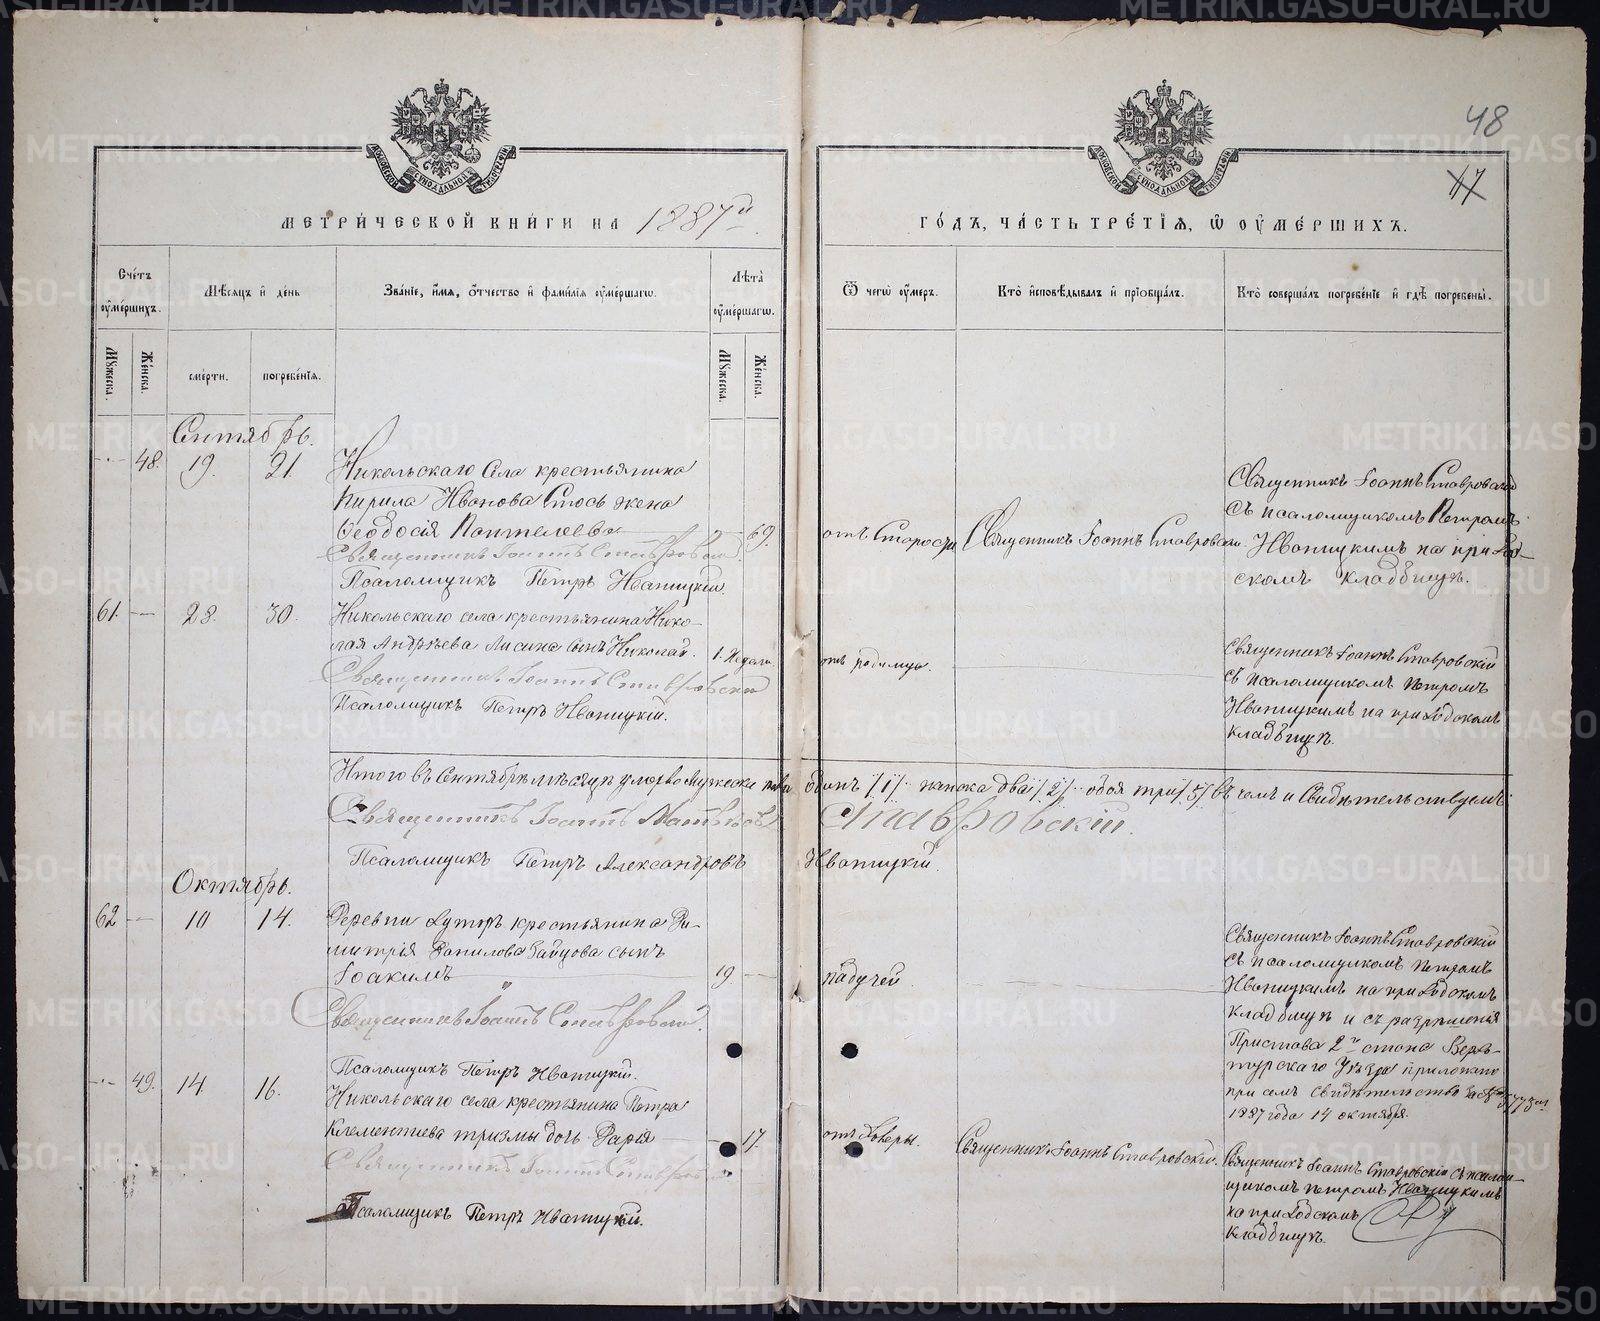 48
47
МЕТРИ́ЧЕСКОЙ КНИ́ГИ НА 1887й
ГО́ДЪ, ЧА́СТЬ ТРЕ́ТІЯ, Ѡ ОУМЕ́РШИХЪ.
Сче́тъ оуме́ршихъ.
Мѣсяцъ и де́нь
Зва́ніе, и́мя, о́тчество и фами́лія оуме́ршагѡ.
Лѣта̀ оуме́ршагѡ.
Ѿ чегѡ̀ оу́меръ.
Кто̀ исповѣ́дывалъ и пріобща́лъ.
Кто̀ соверша́лъ погребе́ніе и гдѣ̀ погребены̀.
Мꙋжеска.
Же́нска.
сме́рти.
погребе́нія.
Мꙋжеска.
Же́нска.
Сентябрь.
48. 19. 21.
Никольскаго Села крестьянина
Кирила Иванова жена
Ѳеодосія Пантелеева 69.
Священникъ Іоаннъ Ставровскій
Псаломщикъ Петръ Иваницкій.
отъ Старости
Священникъ Іоаннъ Ставровскій.
Священникъ Іоаннъ Ставровскій
съ псаломщикомъ Петромъ
Иваницкимъ на приход-
скомъ кладбищѣ.
61. 28. 30.
Никольскаго села крестьянина Нико-
лая Андрѣева Лисина сынъ Николай. 1. Недели
Священникъ Іоаннъ Ставровскій
Псаломщикъ Петръ Иваницкій.
отъ родимца.
Священникъ Іоаннъ Ставровскій
съ псаломщикомъ Петромъ
Иваницкимъ на приходскомъ
кладбищѣ.
Итого въ Сентябрѣ мѣсяцѣ умерло Мужеска пола одинъ /1/ женска два /2/ обоя три /3/ въ чемъ и свидѣтельствуемъ:
Священникъ Іоаннъ Матвѣевъ Ставровскій.
Псаломщикъ Петръ Александровъ Иваницкій.
Октябрь.
62 10 14.
Деревни Хутор. крестьянина Ди-
митрія Данилова Зайцова сынъ
Іоакимъ 19.
Священникъ Іоаннъ Ставровскій.
Псаломщикъ Петръ Иваницкій.
падучей.
Священникъ Іоаннъ Ставровскій
съ псаломщикомъ Петромъ
Иваницкимъ на приходскомъ
кладбищѣ и съ разрѣшенія
Пристава 2го стана Верхо-
турскаго Уѣзда приложено
при семъ свидѣтельство за №
1887 года 14 октября.
49. 14 16.
Никольскаго села крестьянина Петра
Клементиева Тризмы дочь Дарія 17.
Священникъ Іоаннъ Ставровскій
Псаломщикъ Петръ Иваницкій.
отъ
Священникъ Іоаннъ Ставровскій.
Священникъ Іоаннъ Ставровскій съ псалом-
щикомъ Петромъ Иваницкимъ
на приходскомъ
кладбищѣ.
METRIKI.GASO-URAL.RU